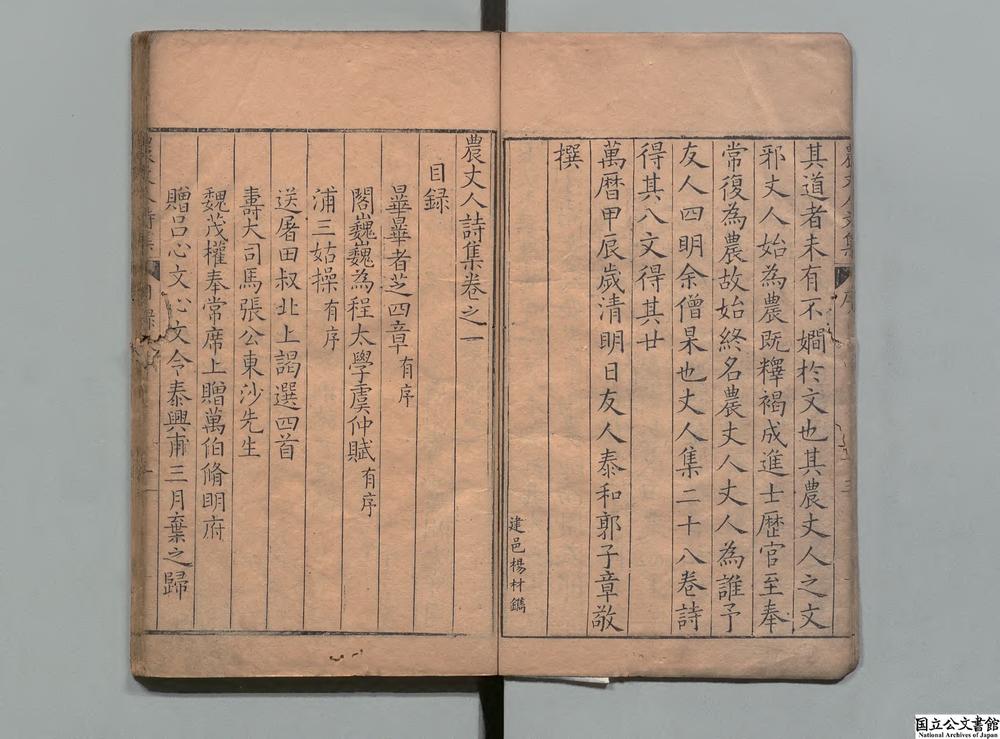 其道者未有不嫺於文也其農丈人之文
邪丈人始為農既釋褐成進士歷官至奉
常復為農故始終名農丈人丈人為誰予
友人四明余僧杲也丈人集二十八卷詩
得其八文得其廿
萬曆甲辰歲清明日友人泰和郭子章敬
撰
建邑楊材鐫
農丈人詩集卷之一
目録
畢畢者芝四章有序
閣巍巍為程太學虞仲賦有序
浦三姑操有序
送屠田叔北上謁選四首
壽大司馬張公東沙先生
魏茂權奉常席上贈萬伯脩明府
贈呂心文心文令泰興甫三月棄之歸
国立公文書館
National Archives of Japan